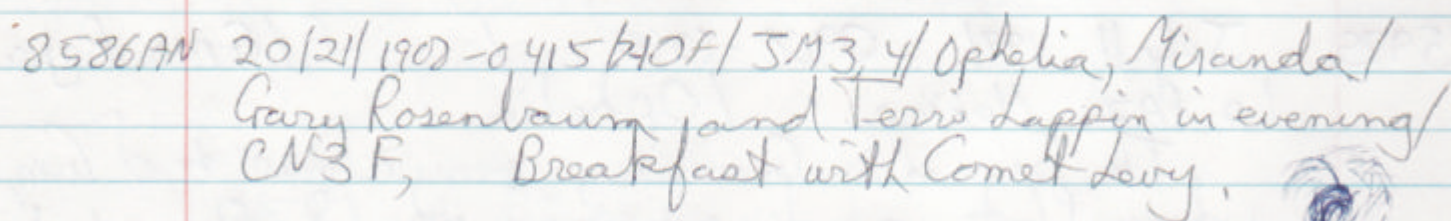 8586AN 20/21/1900-0415/HOF/JM3,4/Ophelia, Miranda/
Gary Rosenbaum and Terri Lappin in evening/
CN3F, Breakfast with Comet Levy.